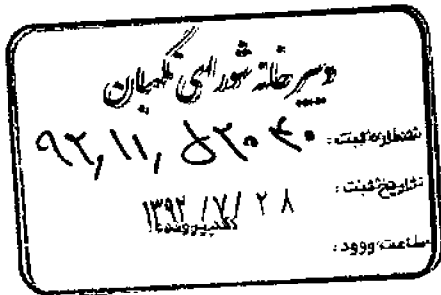 دبیرخانه شورای نگهبان
شماره ثبت: ۹۲/۱۱/۵۲۰۴۰
تاریخ ثبت: ۱۳۹۲/۷/۲۸
کدپرونده:
ساعت ورود: